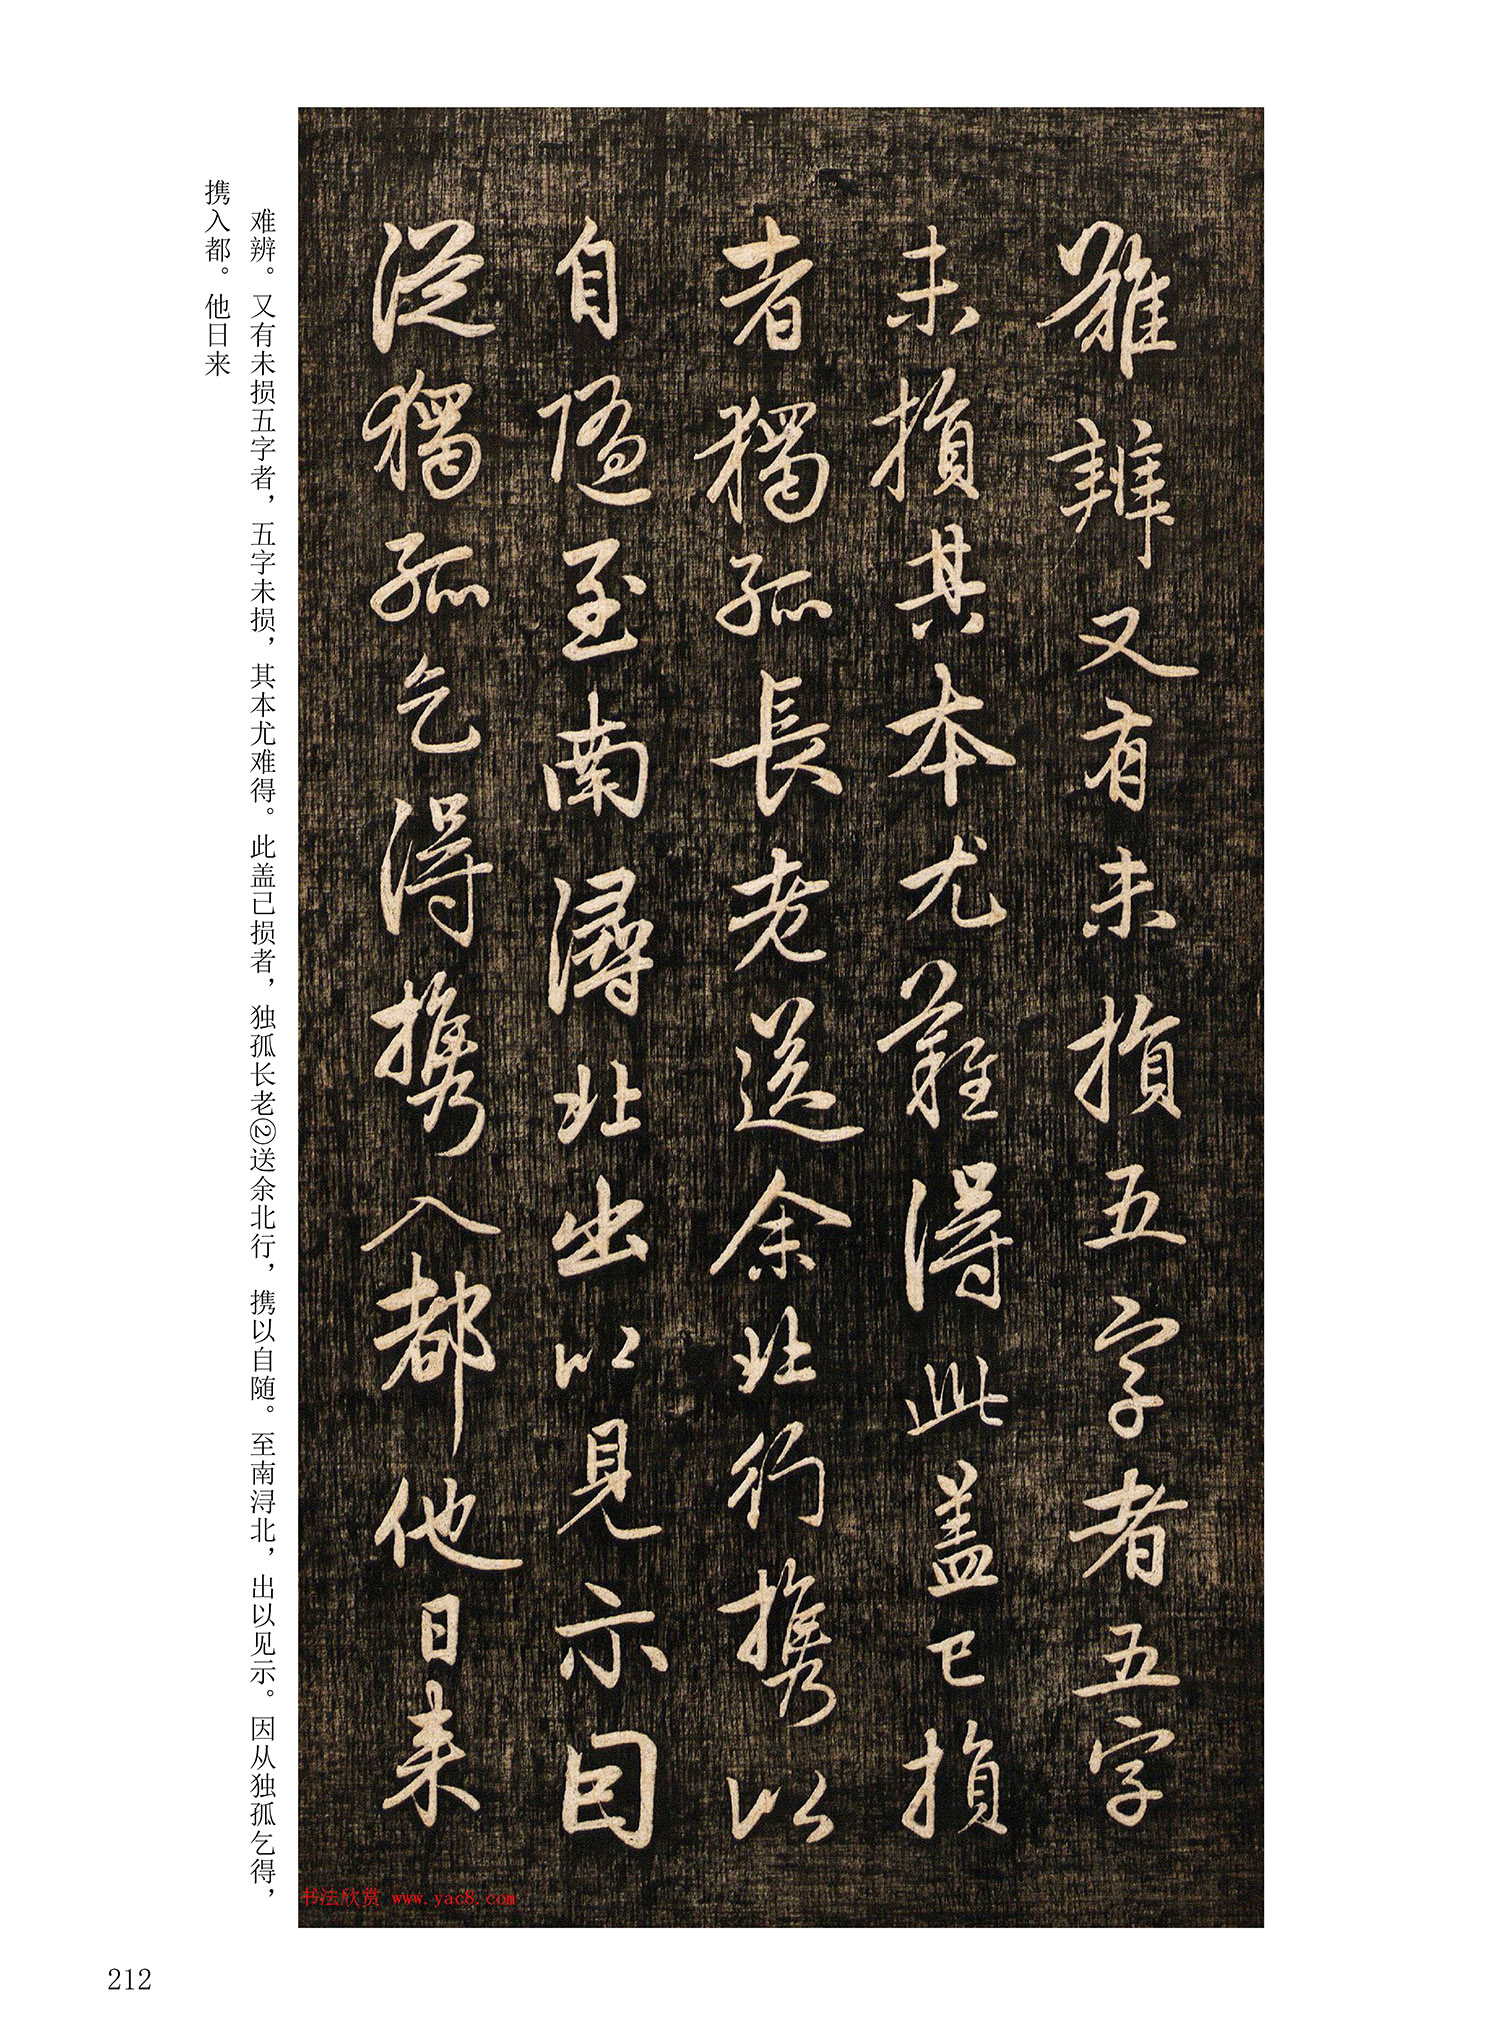 難辨又有未損五字者五字
未損其本尤難得此蓋已損
者獨孤長老送余北行攜以
自隨至南潯北出以見示因
從獨孤乞得攜入都他日来
难辨。又有未损五字者，五字未损，其本尤难得。此盖己损者，独孤长老②送余北行，携以自随。至南浔北，出以见示。因从独孤乞得，
携入都。他日来
书法欣赏 www.yac8.com
212